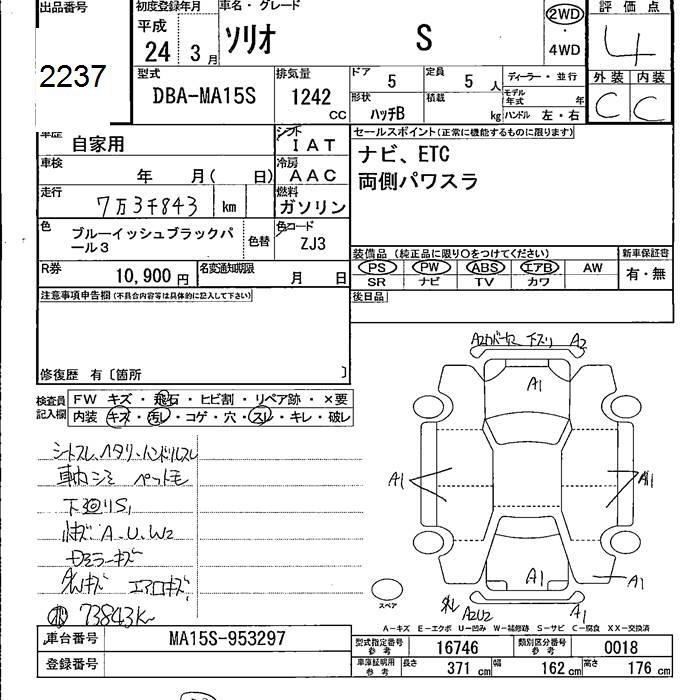 出品番号
2237
初度登録年月
平成
24 3 月
車名・グレード
ソリオ S
2WD
・
4WD
評価点
4
外装 内装
C C
型式
DBA-MA15S
排気量
1242 CC
ドア 5
定員 5 人
形状 ハッチB
積載 kg
ディーラー・並行
モデル年式 年
ハンドル 左・右
車歴 自家用
シフト IAT
車検 年 月( 日)
冷房 AAC
走行 7万3千843 km
燃料 ガソリン
色 ブルーイッシュブラックパール3
色替
色コード ZJ3
R券 10,900 円
名変通知期限 月 日
セールスポイント(正常に機能するものに限ります)
ナビ、ETC
両側パワスラ
装備品(純正品に限り○をつけてください)
PS PW ABS エアB AW
SR ナビ TV カワ
新車保証書
有・無
後日品
注意事項申告欄(不具合内容等は具体的に記入して下さい)
修復歴 有〔箇所 〕
検査員記入欄
FW キズ・飛石・ヒビ割・リペア跡・×要
内装 キズ・汚レ・コゲ・穴・スレ・キレ・破レ
シートスレ、ヘタリ、ハンドルスレ
車内シミ ペット毛
下廻りS,
キズ A.U.W2
ドアミラーキズ
エアロキズ
73843K
A2 カバー
下スリ A2
A1
A1
A1
A1
A1
A2U2
A1
スペア
A-キズ E-エクボ U-凹み W-補修跡 S-サビ C-腐食 XX-交換済
車台番号 MA15S-953297
登録番号
型式指定番号参考 16746
類別区分番号参考 0018
車庫証明用参考
長さ 371 cm
幅 162 cm
高さ 176 cm